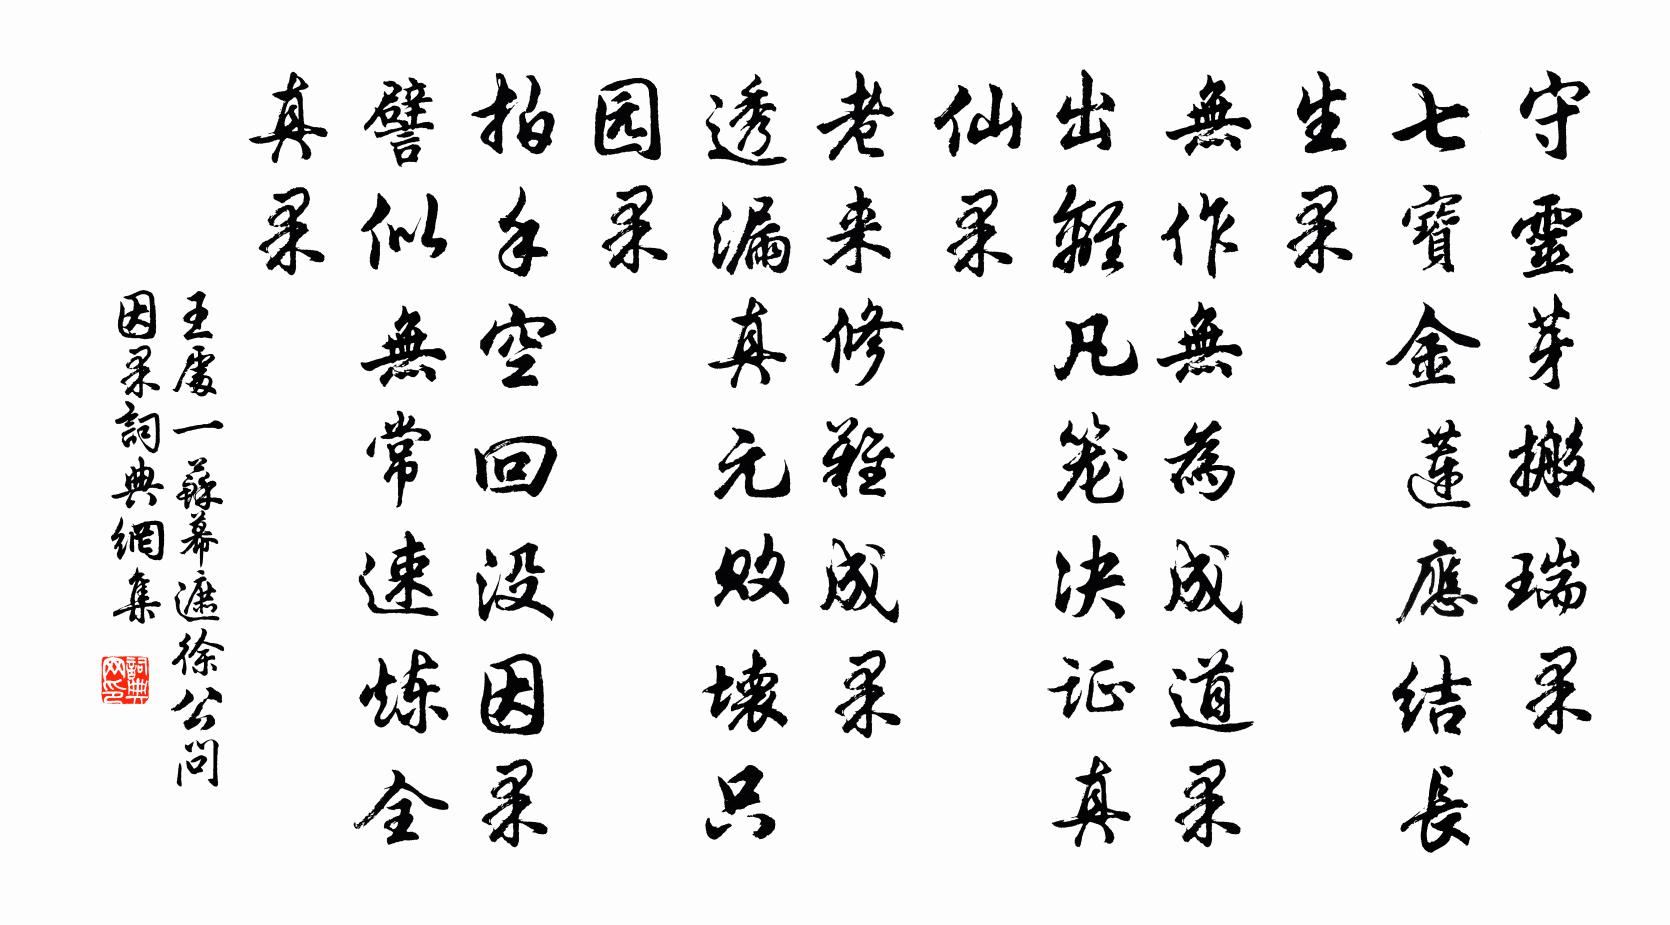 守靈芽搬瑞果
七寶金蓮應結長
生果
無作無為成道果
出離凡笼决证真
仙果
老来修難成果
透漏真元败壞只
园果
拍手空回没因果
譬似無常速炼全
真果
王處一蘇幕遮徐公問
因果詞典網集
詞典
网印